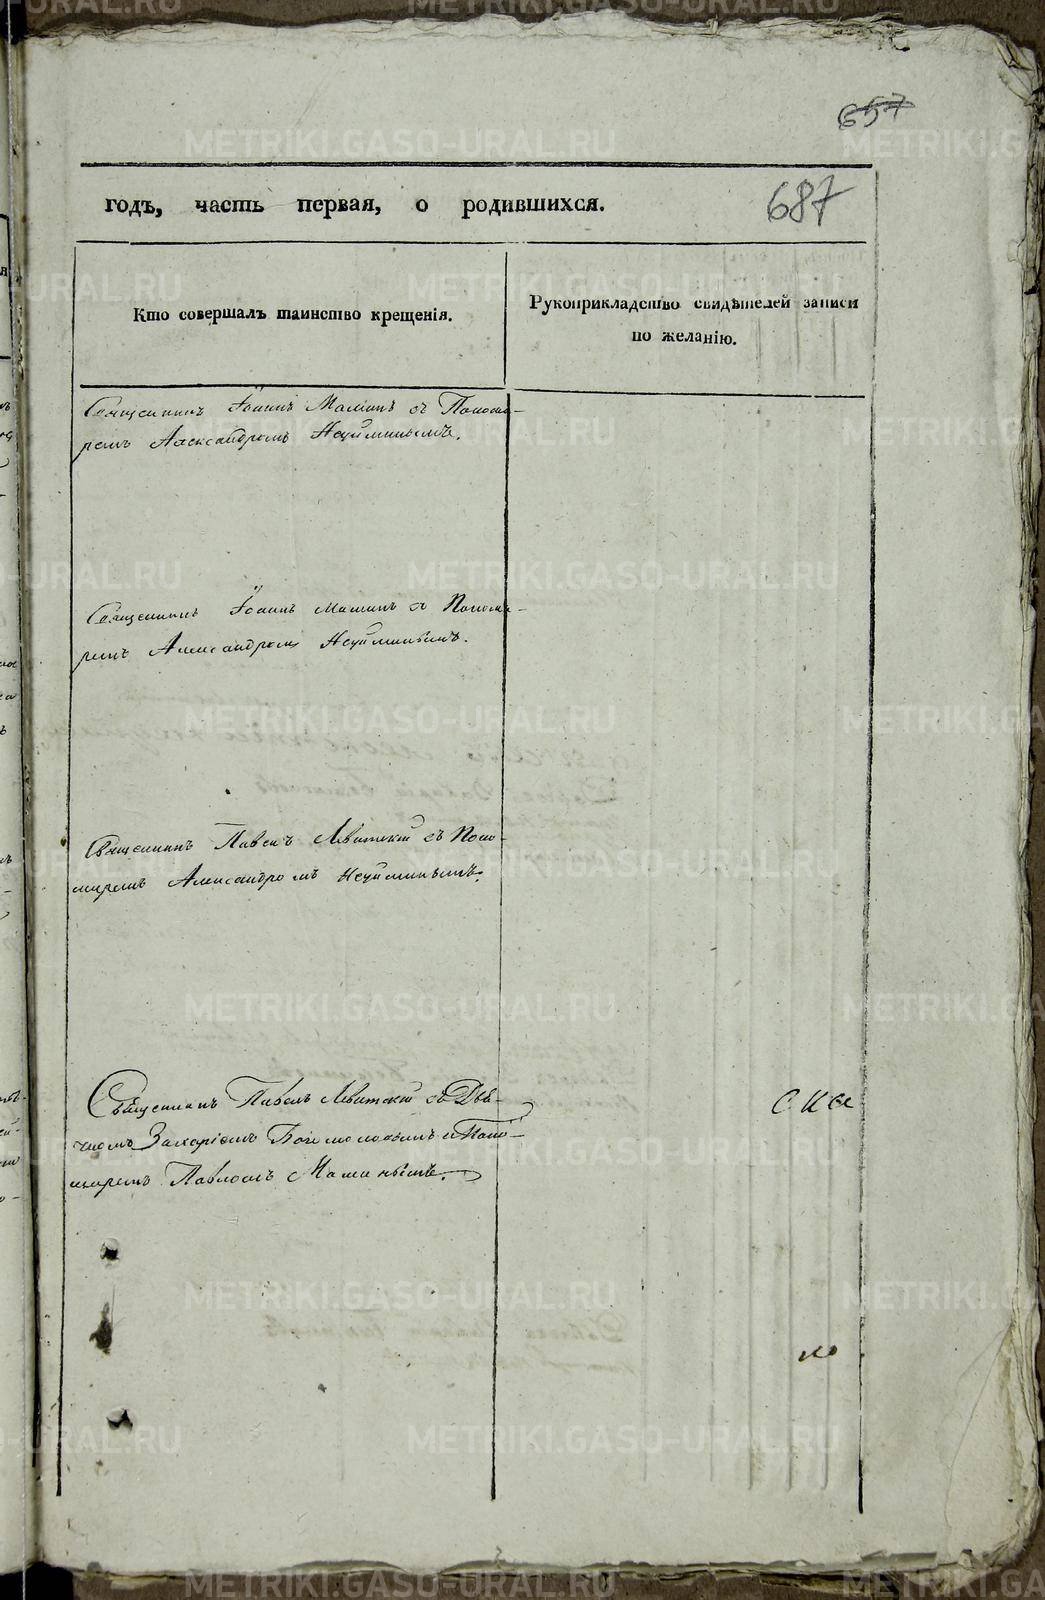 657
687
годъ, часть первая, о родившихся.
Кто совершалъ таинство крещенія.
Рукоприкладство свидѣтелей записи
по желанію.
Священникъ Іоаннъ Маминъ съ Понома-
ремъ Александромъ Неуйминымъ.
Священникъ Іоаннъ Маминъ съ Понома-
ремъ Александромъ Неуйминымъ.
Священникъ Павелъ Левитскій съ Поно-
маремъ Александромъ Неуйминымъ.
Священникъ Павелъ Левитскій съ Дья-
чкомъ Захаріемъ Богомоловымъ и Поно-
маремъ Павломъ Маминымъ.
METRIKI.GASO-URAL.RU